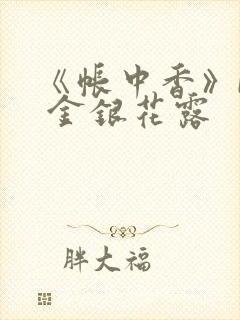 《帳中香》
金銀花露
胖大福